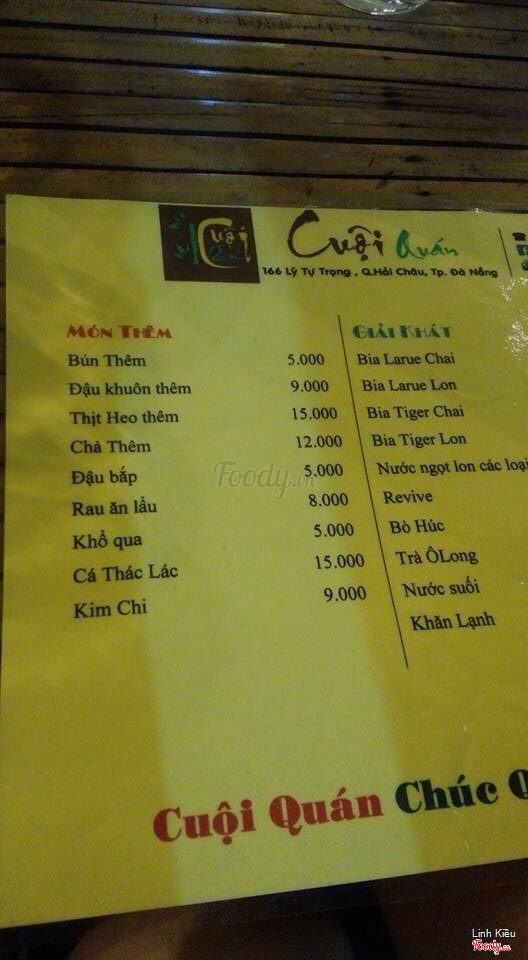 Cuội
Cuội Quán
166 Lý Tự Trọng , Q.Hải Châu, Tp. Đà Nẵng
MÓN THÊM
Bún Thêm 5.000
Đậu khuôn thêm 9.000
Thịt Heo thêm 15.000
Chả Thêm 12.000
Đậu bắp 5.000
Rau ăn lẩu 8.000
Khổ qua 5.000
Cá Thác Lác 15.000
Kim Chi 9.000
GIẢI KHÁT
Bia Larue Chai
Bia Larue Lon
Bia Tiger Chai
Bia Tiger Lon
Nước ngọt lon các loại
Revive
Bò Húc
Trà ÔLong
Nước suối
Khăn Lạnh
Foody.vn
Cuội Quán Chúc Q
Linh Kiều
Foody.vn